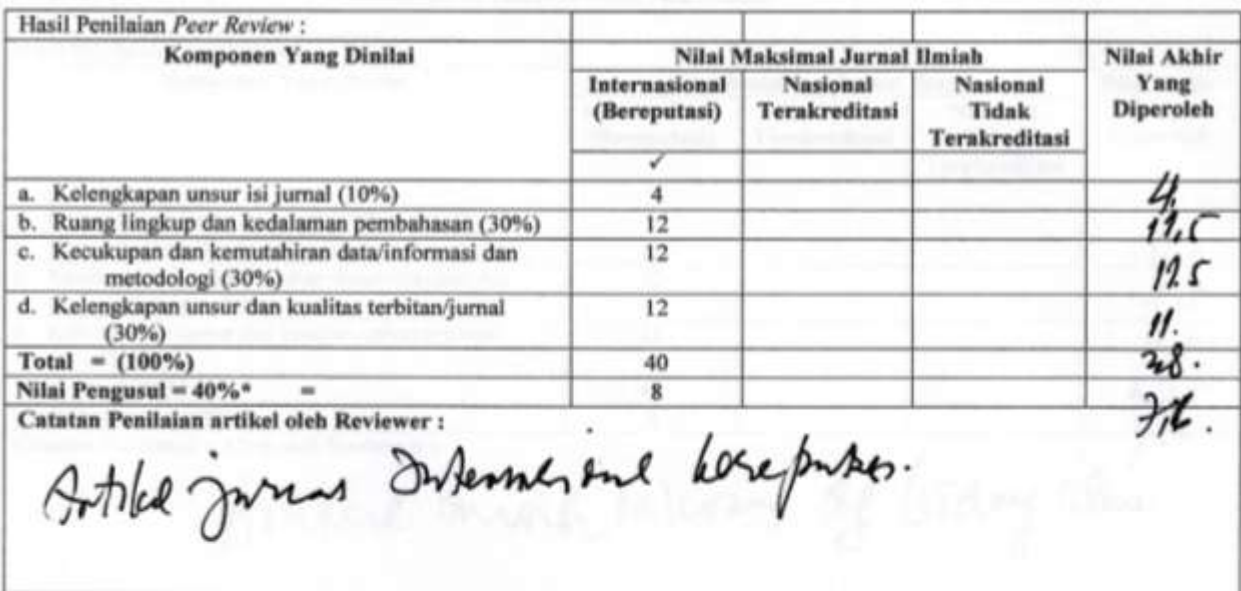 Hasil Penilaian Peer Review :
Komponen Yang Dinilai
Nilai Maksimal Jurnal Ilmiah
Nilai Akhir Yang Diperoleh
Internasional (Bereputasi)
Nasional Terakreditasi
Nasional Tidak Terakreditasi
✓
a. Kelengkapan unsur isi jurnal (10%) 4 4,
b. Ruang lingkup dan kedalaman pembahasan (30%) 12 11,5
c. Kecukupan dan kemutahiran data/informasi dan
metodologi (30%) 12 11.5
d. Kelengkapan unsur dan kualitas terbitan/jurnal
(30%) 12 11.
Total = (100%) 40 38.
Nilai Pengusul = 40%* = 8 7,6.
Catatan Penilaian artikel oleh Reviewer :
Artikel jurnal Internasional bereputasi.